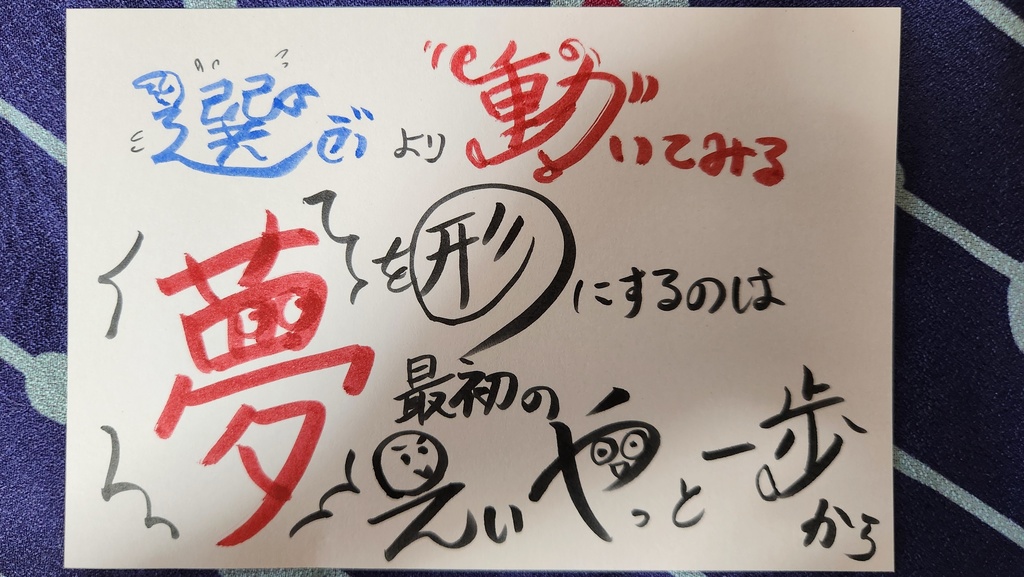 選ぶより動いてみる
夢を形にするのは
最初の
えいやっと一歩
から